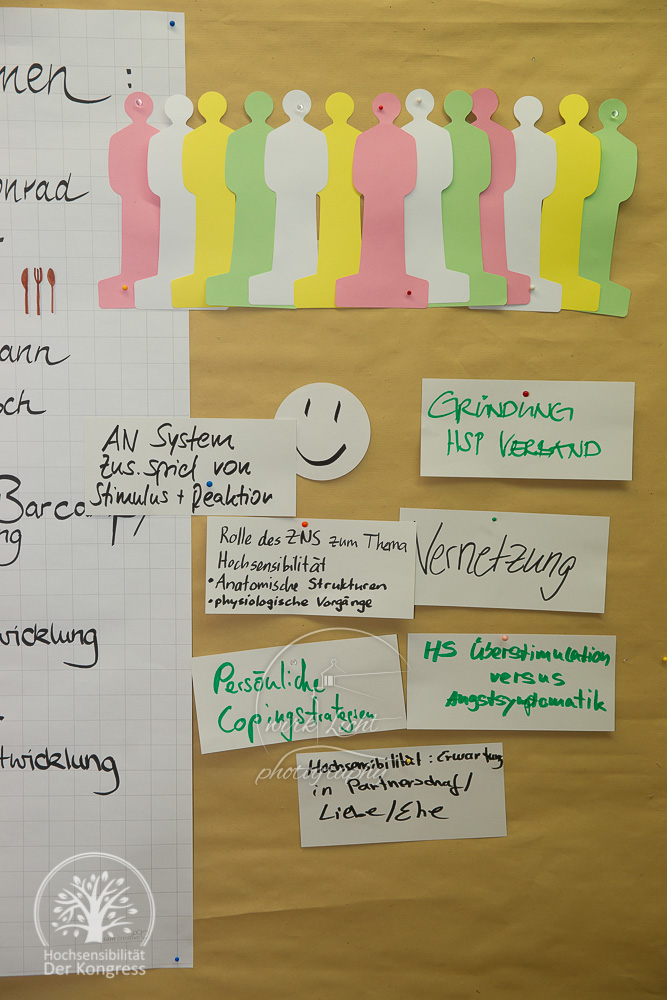 men :
onrad
ann
och
Barca
ng
wicklung
twicklung
AN System
Zus.spiel von
Stimulus + Reaktion
GRÜNDUNG
HSP VERBAND
Rolle des ZNS zum Thema
Hochsensibilität
• Anatomische Strukturen
• physiologische Vorgänge
Vernetzung
Persönliche
Copingstrategien
HS Überstimulation
versus
Angstsymptomatik
Hochsensibilität : Erwartung
in Partnerschaf/
Liebe/Ehe
work Light
photography
Hochsensibilität
Der Kongress